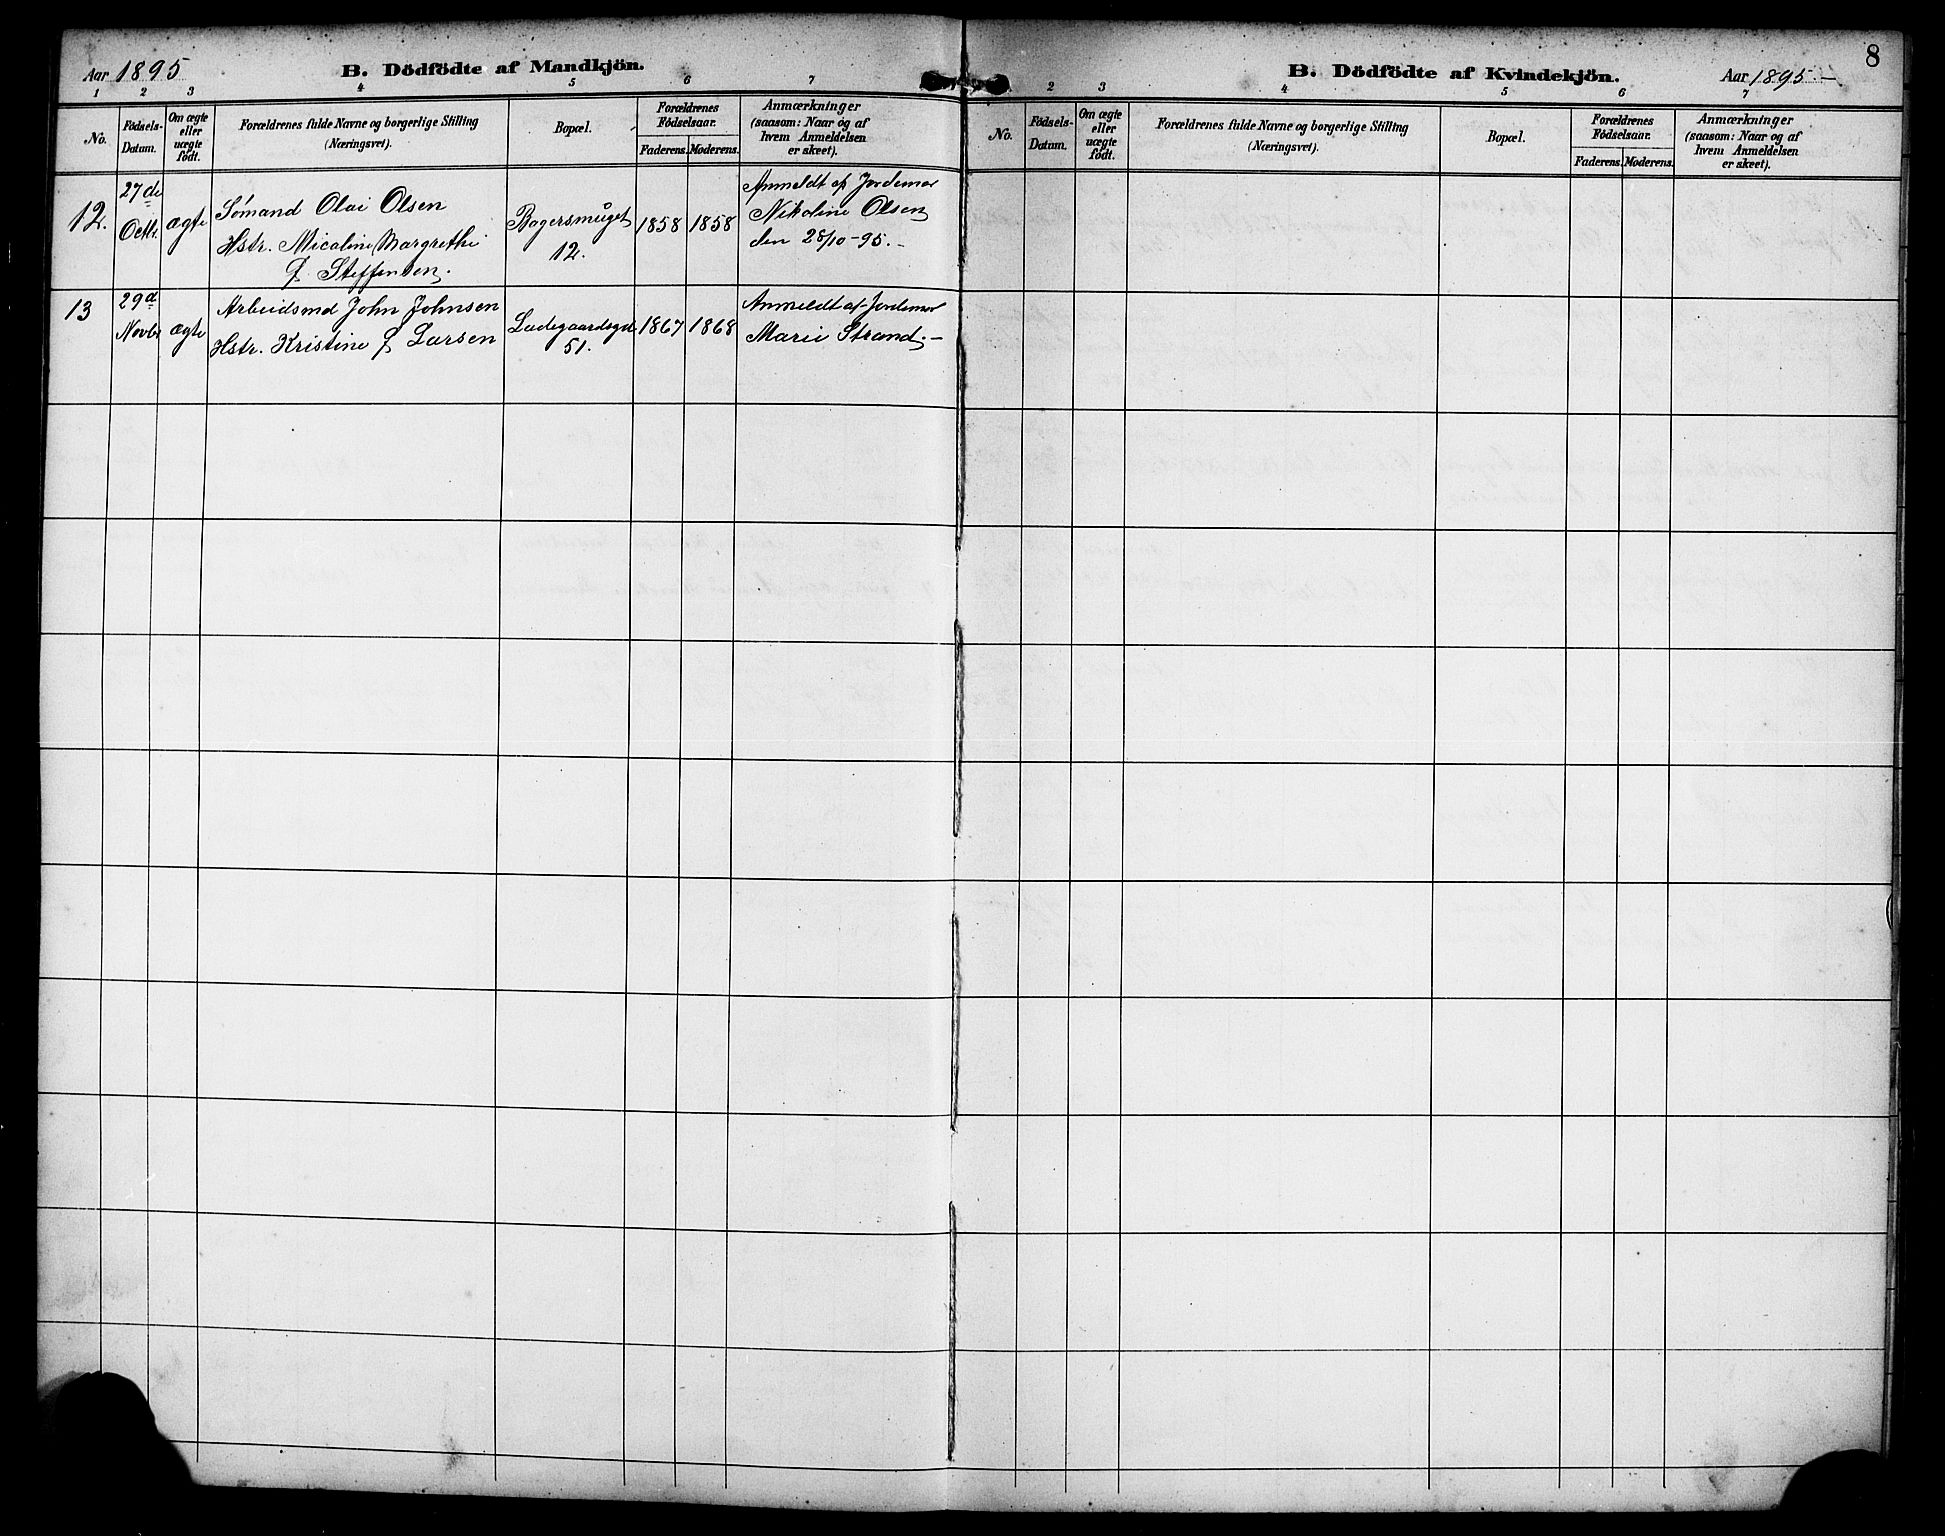 Aar 1895
B. Dödfödte af Mandkjön.
1 2 3 4 5 6 7
No.
Födsels-
Datum.
Om ægte
eller
uægte
födt.
Forældrenes fulde Navne og borgerlige Stilling
(Næringsvei).
Bopæl.
Forældrenes
Födselsaar.
Faderens. Moderens.
Anmærkninger
(saasom: Naar og af
hvem Anmeldelsen
er skeet).
12.
27de
Octbr.
ægte
Sømand Olai Olsen
Hstr. Micoline Margrethe
f. Steffensen.
Bøgersmuget
12.
1858 1858
Anmeldt af Jordemor
Nikoline Olsen
den 28/10-95.-
13
29d
Novbr
ægte
Arbeidsmd John Johnsen
Hstr. Kristine f Larsen
Ladegaardsgd
51.
1867 1868
Anmeldt af Jordemor
Marie Strand.-
8
B. Dödfödte af Kvindekjön.
Aar 1895.-
2 3 4 5 6 7
No.
Födsels-
Datum.
Om ægte
eller
uægte
födt.
Forældrenes fulde Navne og borgerlige Stilling
(Næringsvei).
Bopæl.
Forældrenes
Födselsaar.
Faderens. Moderens.
Anmærkninger
(saasom: Naar og af
hvem Anmeldelsen
er skeet).